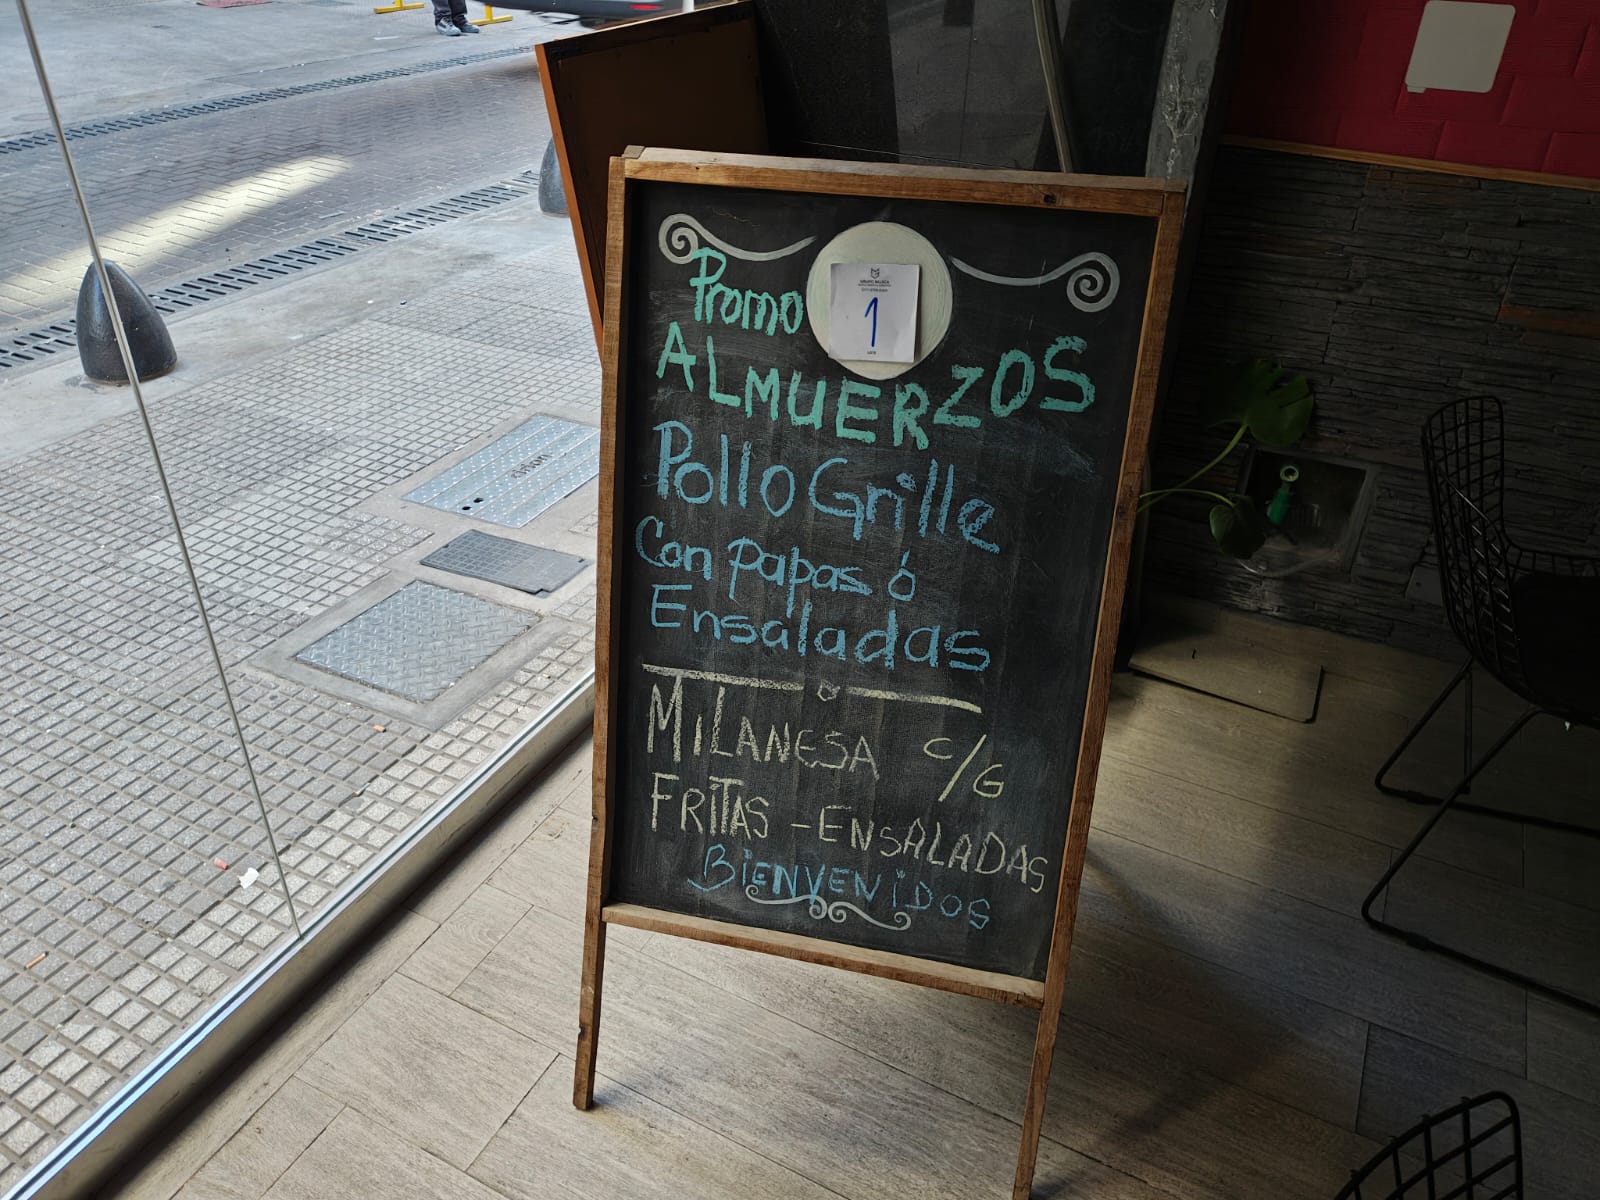 Promo
1
LOTE
ALMUERZOS
Pollo Grille
Con papas ó
Ensaladas
o
MILANESA c/G
FRITAS - ENSALADAS
BIENVENIDOS